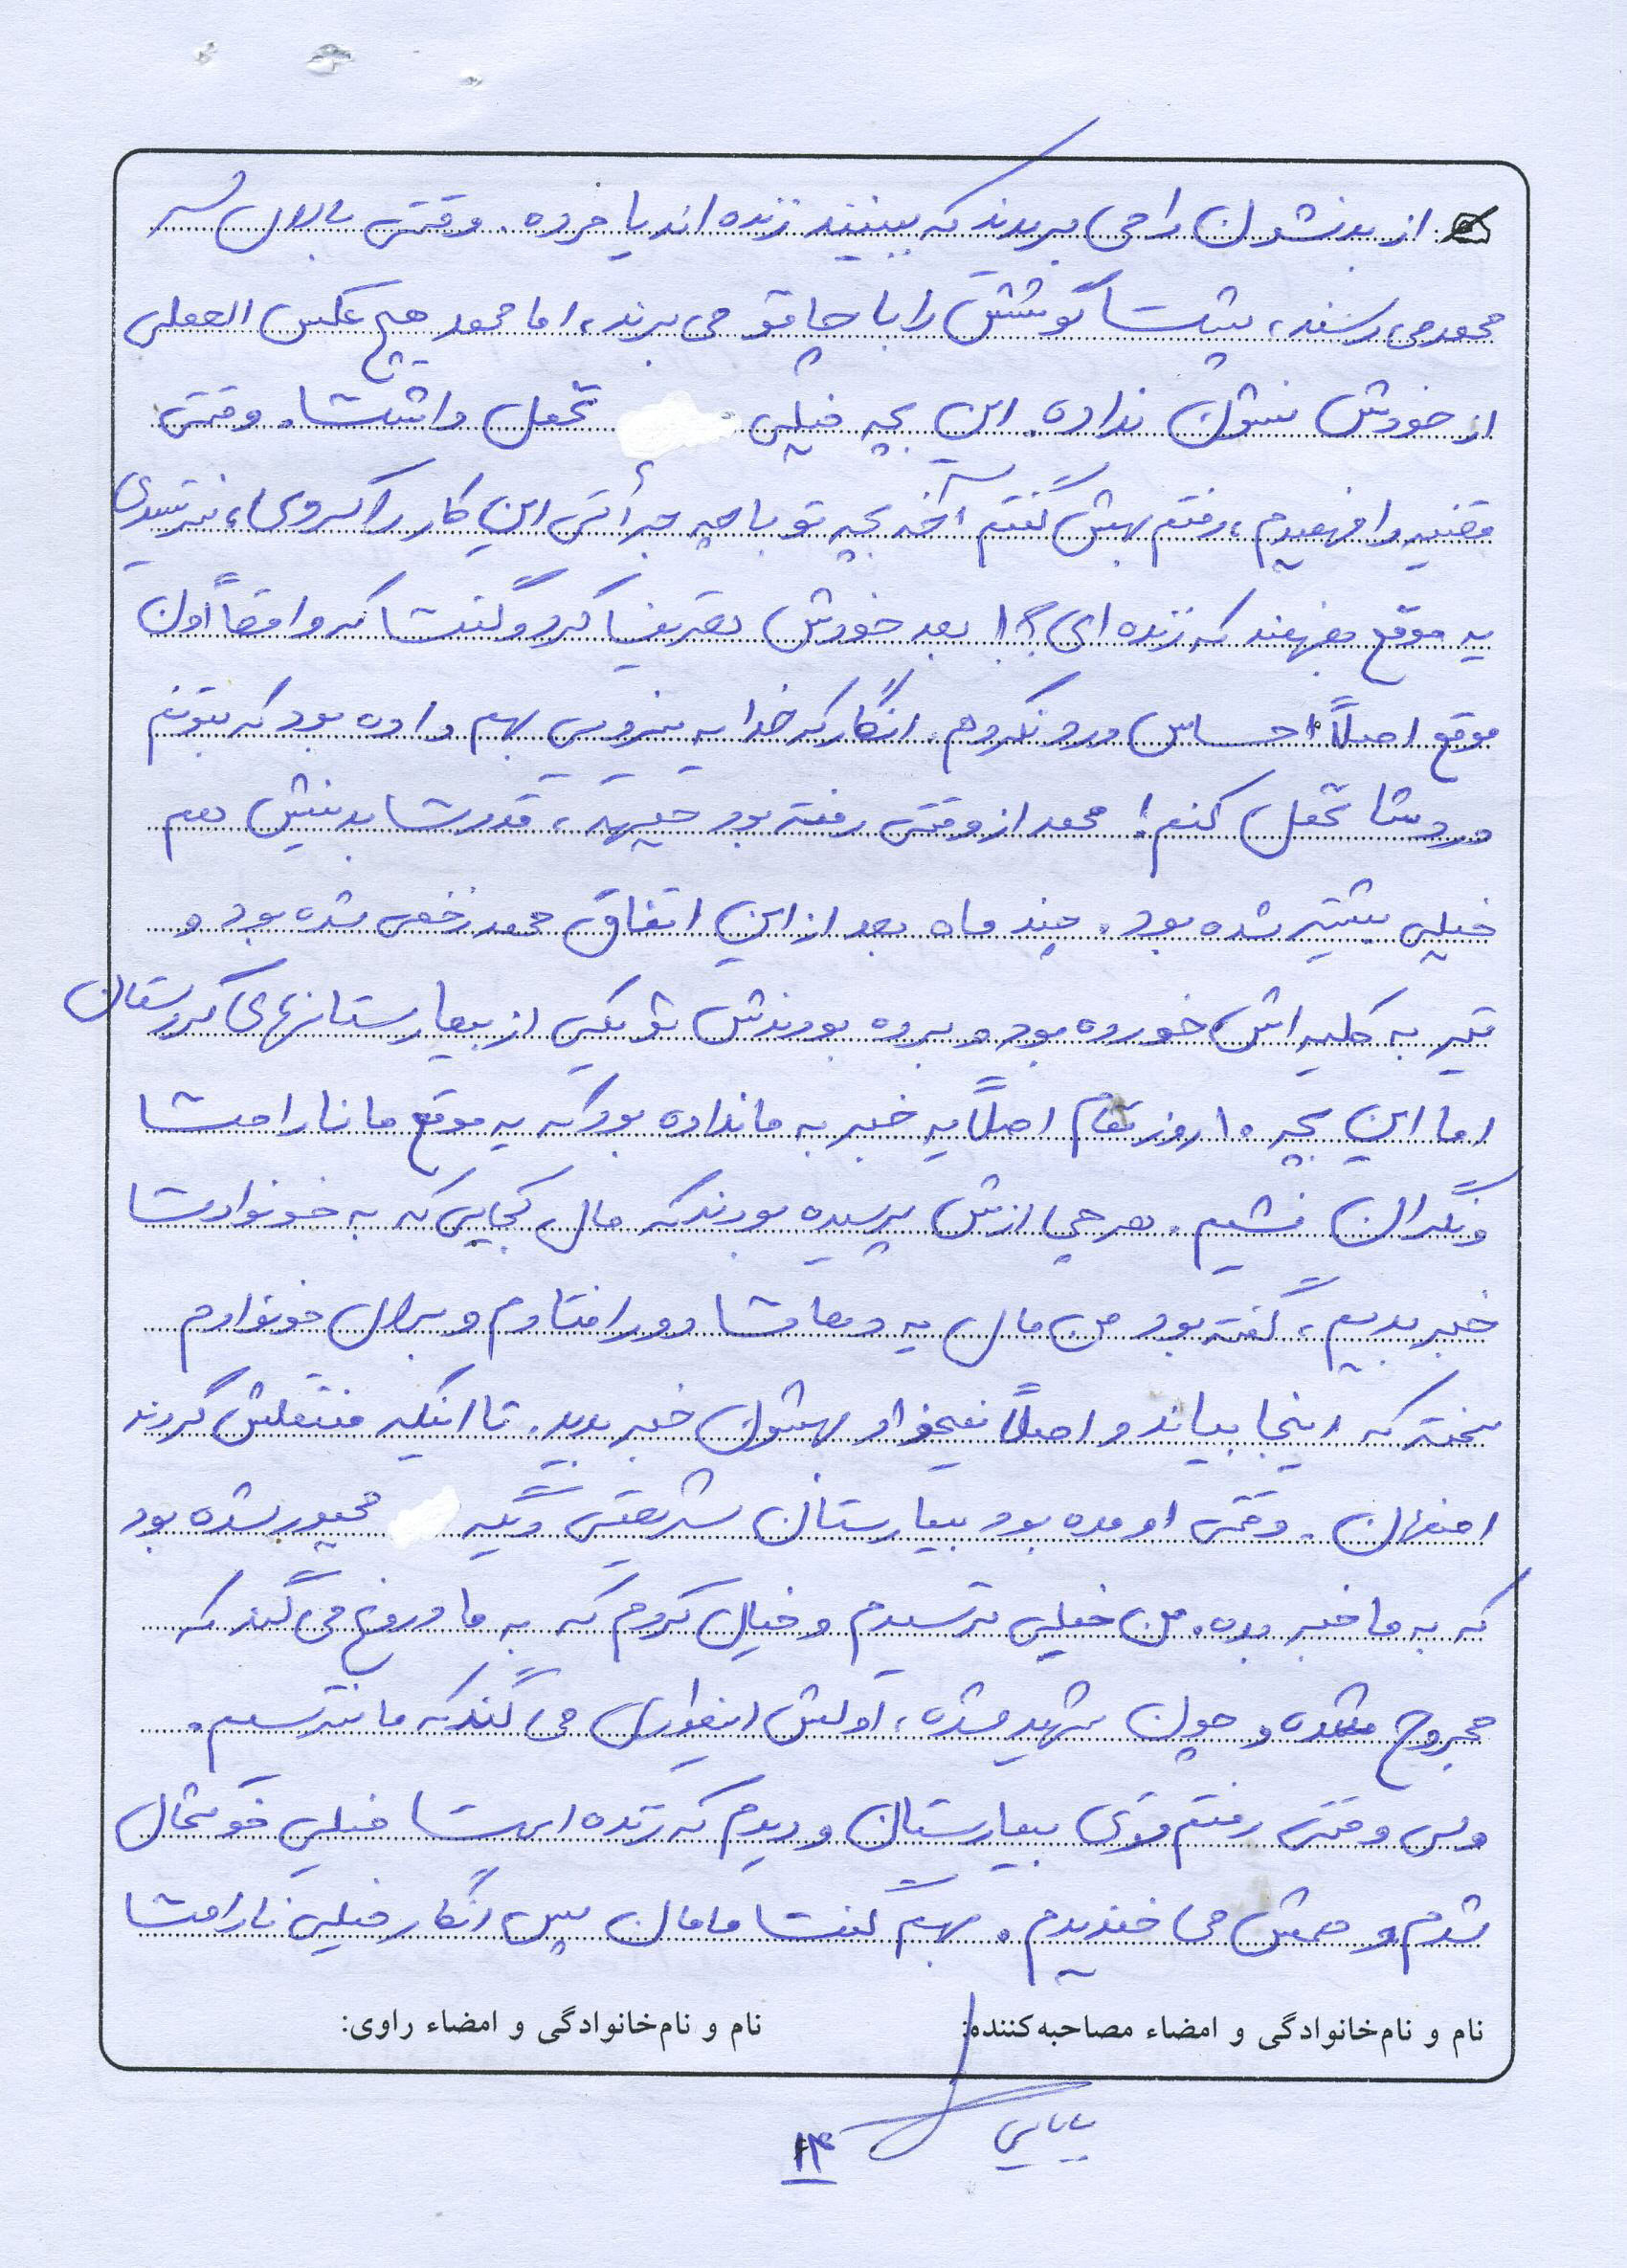 از بدنشون را می بریدند که ببینند زنده اند یا مرده. وقتی بالای سر
محمد می رسند، پشت گوشش را با چاقو می برند، اما محمد هیچ عکس العملی
از خودش نشون نداده. این بچه خیلی تحمل داشت. وقتی
قضیه را فهمیدم، رفتم بهش گفتم آخه بچه تو با چه جرأتی این کار را کردی، نترسیدی
یه موقع بفهمند که زنده ای؟! بعد خودش تعریف کرد و گفت که واقعاً اون
موقع اصلاً احساس درد نکردم. انگار که خدا یه نیرویی بهم داده بود که بتونم
درد را تحمل کنم! محمد از وقتی رفته بود جبهه، قدرت بدنیش هم
خیلی بیشتر شده بود. چند ماه بعد از این اتفاق محمد زخمی شده بود و
تیر به کلیه اش خورده بود و برده بودندش تو یکی از بیمارستانهای کردستان
اما این بچه ۱۰ روز تمام اصلاً یه خبر به ما نداده بود که یه موقع ما ناراحت
و نگران نشیم. هر چی ازش پرسیده بودند که مال کجایی که به خونوادت
خبر بدیم، گفته بود من مال یه دهات دور افتادم و برای خونوادم
سخته که اینجا بیاند و اصلاً نمیخواد بهشون خبر بدید. تا اینکه منتقلش کردند
اصفهان. وقتی اومده بود بیمارستان شریعتی دیگه مجبور شده بود
که به ما خبر بده. من خیلی ترسیدم و خیال کردم که به ما دروغ می گند که
مجروح شده و چون شهید شده، اولش اینطوری می گند که ما نترسیم.
ولی وقتی رفتم توی بیمارستان و دیدم که زنده است خیلی خوشحال
شدم و همش می خندیدم. بهم گفت مامان پس انگار خیلی ناراحت
نام و نام‌خانوادگی و امضاء مصاحبه‌کننده: نام و نام‌خانوادگی و امضاء راوی:
بابایی
۱۴